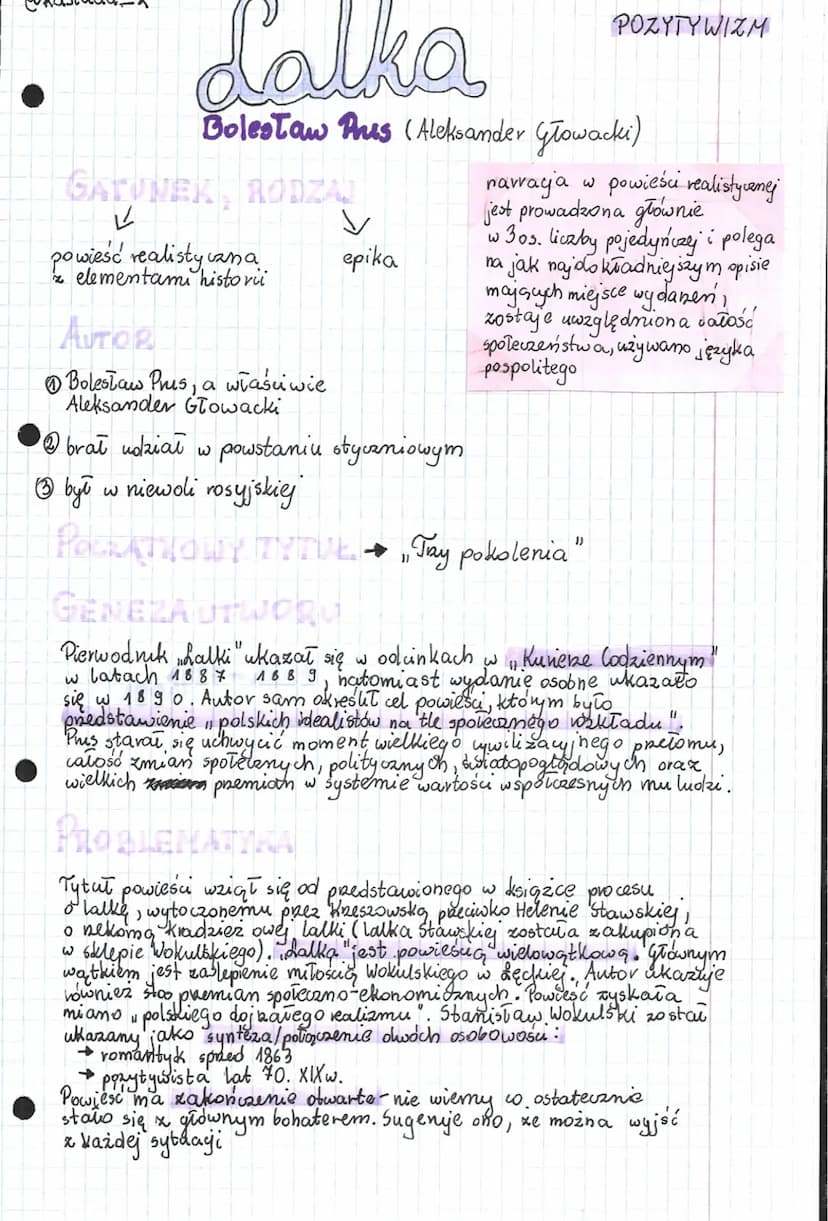 POZYTYWIZM
Lalka
Bolesław Prus (Aleksander Głowacki)
GATUNEK, RODZAJ
powieść realistyczna
z elementami historii
epika
narracja w powieści realistycznej
jest prowadzona głównie
w 3 os. liczby pojedyńczej i polega
na jak najdokładniejszym opisie
mających miejsce wydarzeń,
zostaje uwzględniona całość
społeczeństwa, używano języka
pospolitego
AUTOR
① Bolesław Prus, a właściwie
Aleksander Głowacki
② brał udział w powstaniu styczniowym
③ był w niewoli rosyjskiej
POCZĄTKOWY TYTUŁ → „Trzy pokolenia"
GENEZA UTWORU
Pierwodruk „Lalki" ukazał się w odcinkach w „Kurierze Codziennym"
w latach 1887 - 1889, natomiast wydanie osobne ukazało
się w 1890. Autor sam określił cel powieści, którym było
przedstawienie „polskich idealistów na tle społecznego rozkładu".
Prus starał się uchwycić moment wielkiego cywilizacyjnego przełomu,
całość zmian społecznych, politycznych, światopoglądowych oraz
wielkich przemian w systemie wartości współczesnych mu ludzi.
PROBLEMATYKA
Tytuł powieści wziął się od przedstawionego w książce procesu
o lalkę, wytoczonemu przez Krzeszowską, przeciwko Helenie Stawskiej,
o rzekomą kradzież owej lalki (lalka Stawskiej została zakupiona
w sklepie Wokulskiego). „Lalka" jest powieścią wielowątkową. Głównym
wątkiem jest zaślepienie miłością Wokulskiego w Łęckiej. Autor ukazuje
również stan przemian społeczno-ekonomicznych. Powieść zyskała
miano „polskiego dojrzałego realizmu". Stanisław Wokulski został
ukazany jako synteza/połączenie dwóch osobowości:
→ romantyk sprzed 1863
→ pozytywista lat 70. XIX w.
Powieść ma zakończenie otwarte - nie wiemy co ostatecznie
stało się z głównym bohaterem. Sugeruje ono, że można wyjść
z każdej sytuacji